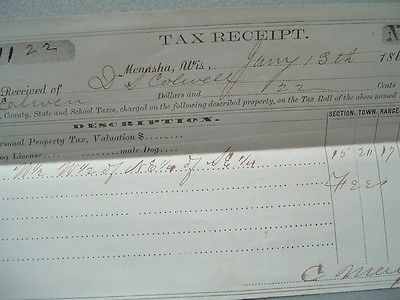 11 22
TAX RECEIPT. N
Menasha, Wis, Jany 13th 186
Received of D. S. Colwell
Eleven Dollars and 22 Cents
County, State and School Taxes, charged on the following described property, on the Tax Roll of the above named
DESCRIPTION. SECTION. TOWN. RANGE
ersonal Property Tax, Valuation $
og License male Dog
W½ W½ of N.E¼ of S E¼ 15 20 17
C